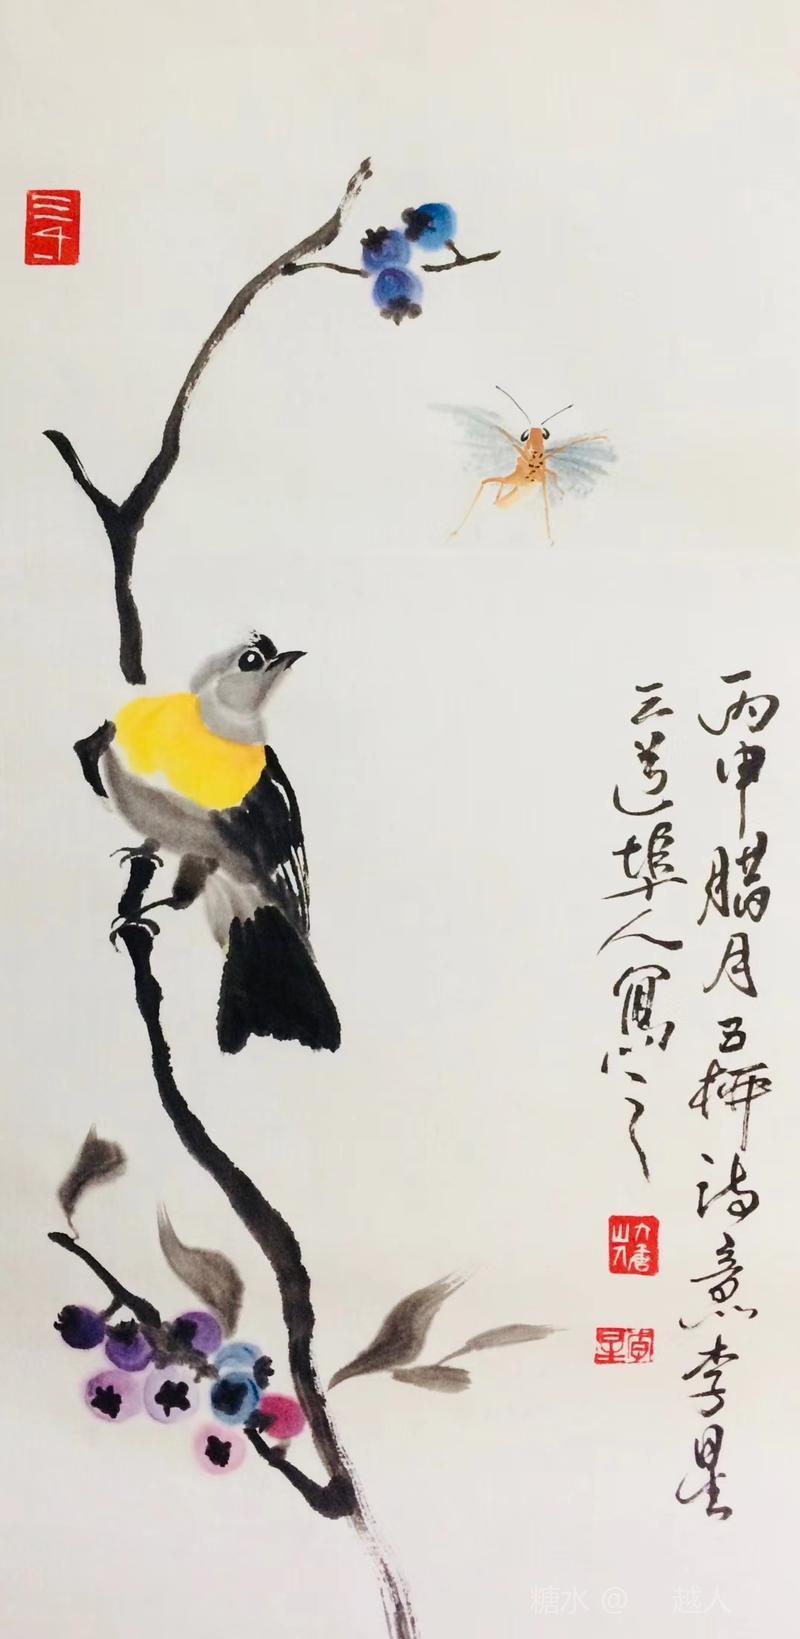 丙申腊月五坪诗意李星
三道埠人写之
三千
李星
糖水@ 越人